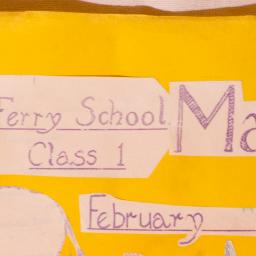 Ferry School
Class 1
Ma
February